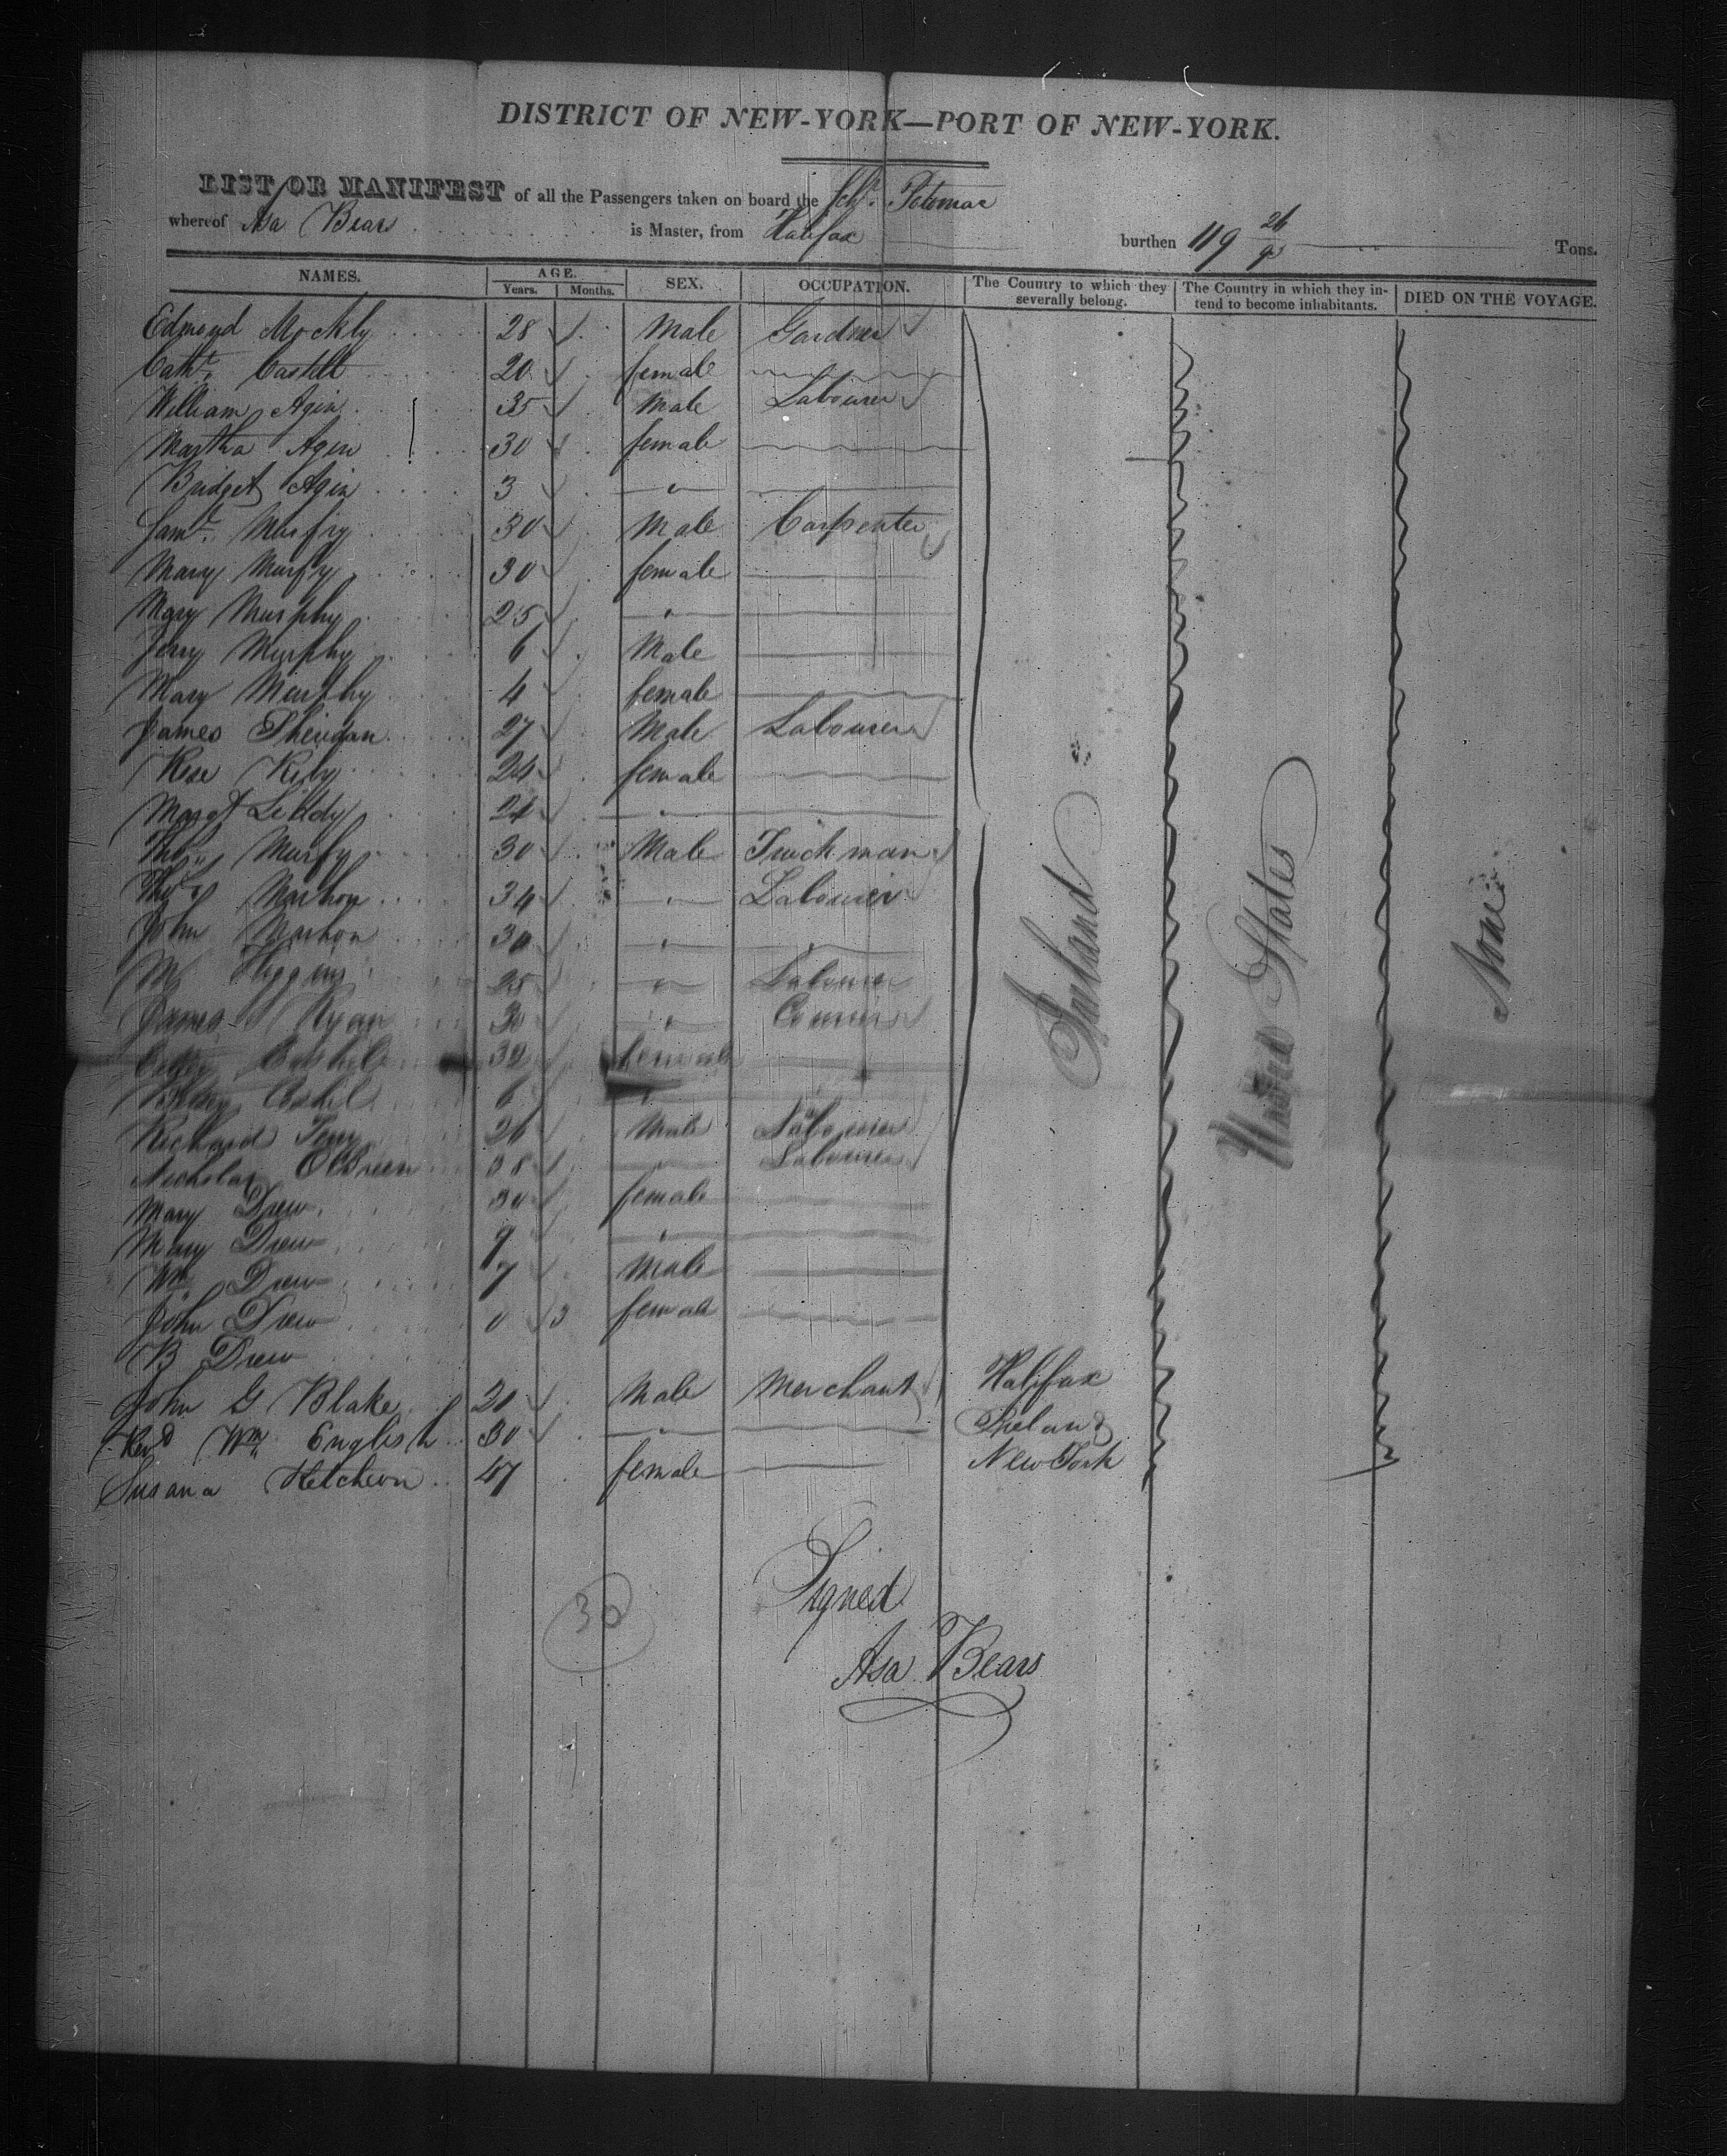 DISTRICT OF NEW-YORK—PORT OF NEW-YORK.
LIST OR MANIFEST of all the Passengers taken on board the Schr. Potomac
whereof Asa Bears is Master, from Halifax burthen 119 26/95 Tons.
NAMES. AGE. SEX. OCCUPATION. The Country to which they severally belong. The Country in which they intend to become inhabitants. DIED ON THE VOYAGE.
Years. Months.
Edmond Mockly 28 Male Gardner
Cath. Castell 20 female
William Agin 35 Male Labourer
Martha Agin 30 female
Bridget Agin 3 "
Saml. Murfy 30 Male Carpenter
Mary Murfy 30 female
Mary Murphy 25 "
Jerry Murphy 6 Male
Mary Murphy 4 female
James Sheridan 27 Male Labourer
Rose Rily 24 female
Margt Liddy 24 "
Thos. Murfy 30 Male Truckman
Thos. Mashon 34 " Labourer
John Mashon 30 " "
M Higgins 25 " Labourer
James Ryan 30 "
32 female
6 "
Richard Terry 26 Male Labourer
Nicholas OBrien 38 " Labourer
Mary Drew 30 female
Mary Drew 9 "
Wm. Drew 7 Male
John Drew 0 3 female
B Drew
Ireland
United States
None
John G Blake 20 Male Merchant Halifax
Revd Wm. English 30 " Ireland
Susana Hetcheon 47 female New York
Signed
30
Asa Bears